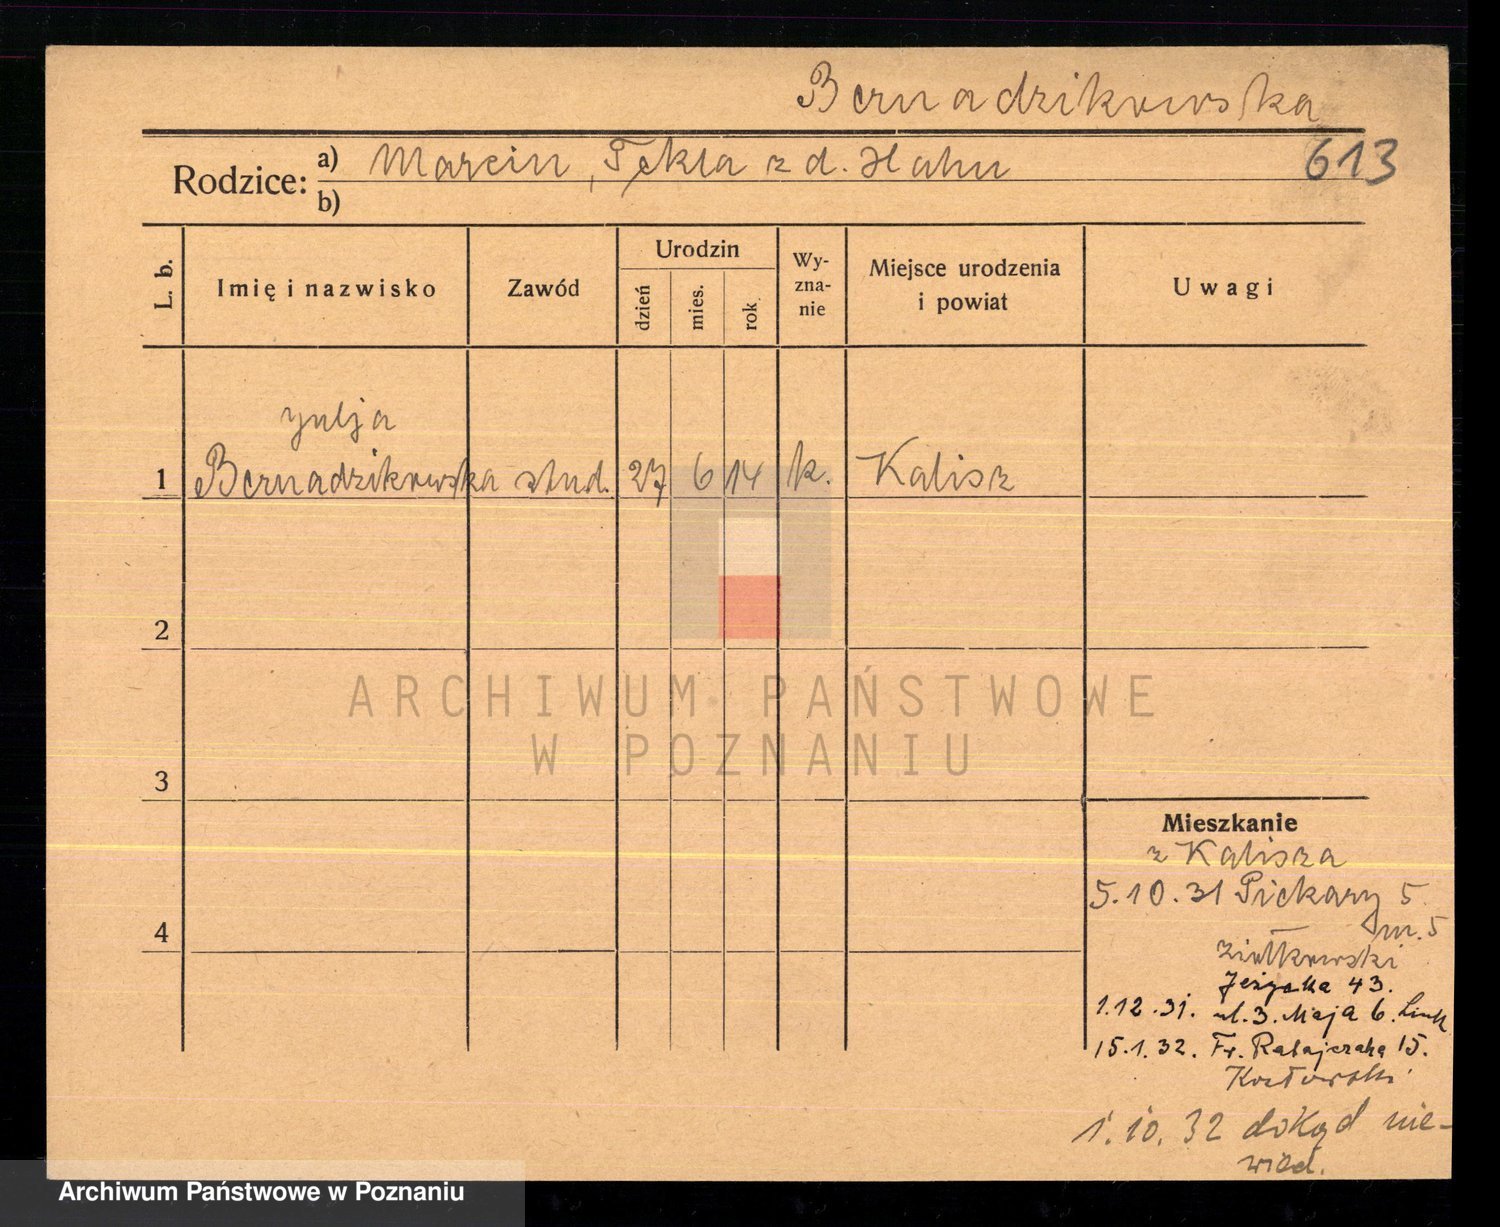 Bernadzikowska
Rodzice: a) Marcin, Tekla z d. Hahn 613
b)
L. b. Imię i nazwisko Zawód Urodzin dzień mies. rok Wy-zna-nie Miejsce urodzenia i powiat Uwagi
Julja
1 Bernadzikowska stud. 27 6 14 k. Kalisz
2
ARCHIWUM PAŃSTWOWE
W POZNANIU
3
Mieszkanie
z Kalisza
5.10.31 Piekary 5
m. 5
4
Ziółkowski
Jeżycka 43.
1.12.31. ul. 3. Maja 6.
15.1.32. Fr. Ratajczaka 15.
Kozłowski
1.10.32 dokąd nie-
wiad.
Archiwum Państwowe w Poznaniu